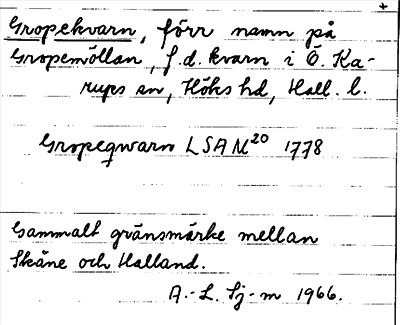 Gropekvarn, förr namn på
Gropemöllan, f.d. kvarn i Ö. Ka-
rups sn, Höks hd, Hall. l.
Gropeqwarn LSA M20 1778
Gammalt gränsmärke mellan
Skåne och Halland.
A.-L. Sj-m 1966.